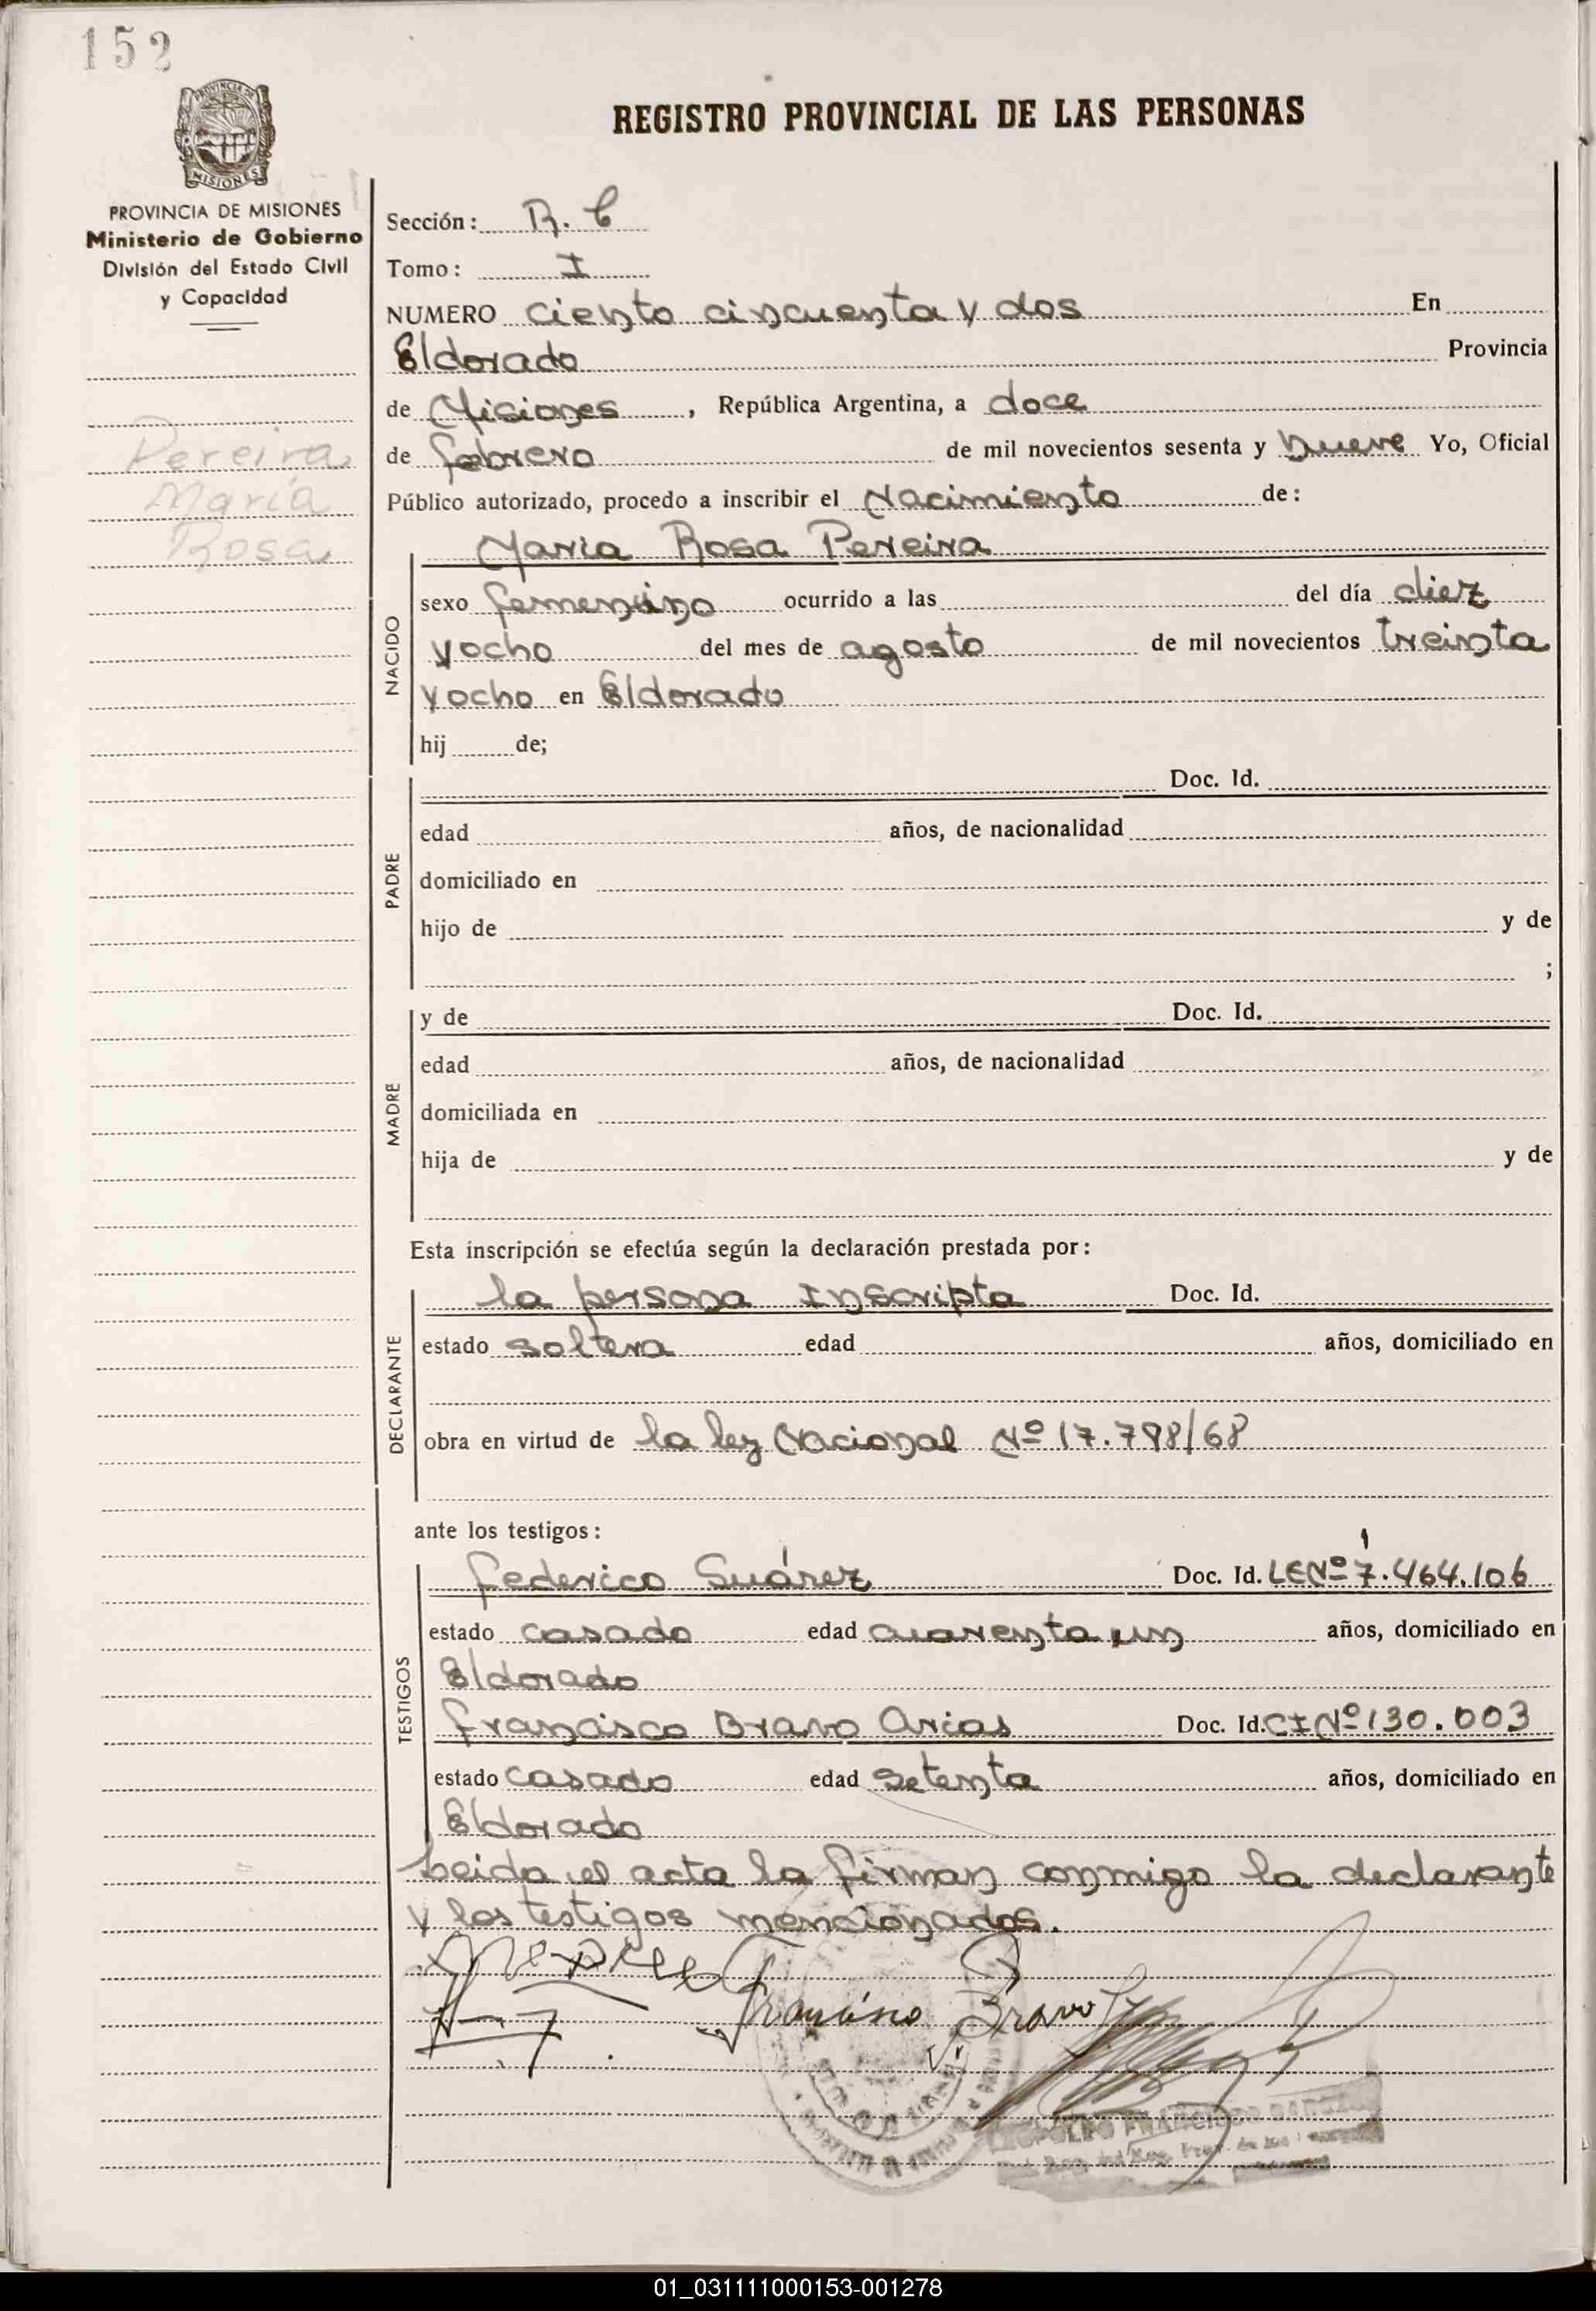 152
PROVINCIA DE
MISIONES
REGISTRO PROVINCIAL DE LAS PERSONAS
PROVINCIA DE MISIONES
Ministerio de Gobierno
División del Estado Civil
y Capacidad
Pereira
María
Rosa
Sección: R. C
Tomo: I
NUMERO ciento cincuenta y dos En
Eldorado Provincia
de Misiones, República Argentina, a doce
de febrero de mil novecientos sesenta y nueve Yo, Oficial
Público autorizado, procedo a inscribir el Nacimiento de:
Maria Rosa Pereira
NACIDO
sexo femenino ocurrido a las del día diez
y ocho del mes de agosto de mil novecientos treinta
y ocho en Eldorado
hij de;
PADRE
Doc. Id.
edad años, de nacionalidad
domiciliado en
hijo de y de
;
MADRE
y de Doc. Id.
edad años, de nacionalidad
domiciliada en
hija de y de
Esta inscripción se efectúa según la declaración prestada por:
DECLARANTE
la persona Inscripta Doc. Id.
estado soltera edad años, domiciliado en
obra en virtud de la ley Nacional Nº 17.798/68
ante los testigos:
TESTIGOS
Federico Suárez Doc. Id. LE Nº 7.464.106
estado casado edad cuarenta un años, domiciliado en
Eldorado
Francisco Bravo Arias Doc. Id. CI Nº 130.003
estado casado edad setenta años, domiciliado en
Eldorado
Leida el acta la firman conmigo la declarante
y los testigos mencionados.
Francisco Bravo
01_031111000153-001278